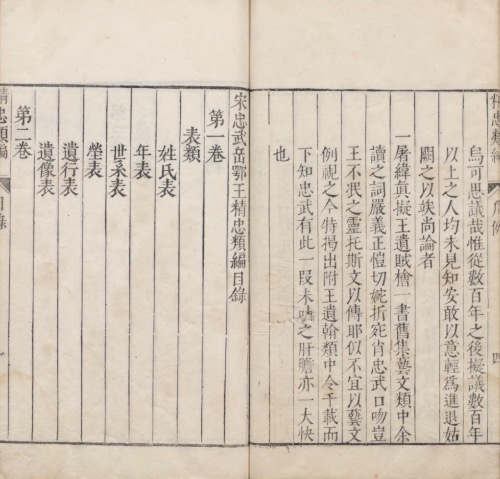 精忠類編 凡例 四
烏可思議哉惟從數百年之後擬議數百年
以上之人均未見知安敢以意輕爲進退姑
闕之以竢尚論者
一屠緯真擬王遺賊檜一書舊集藝文類中余
讀之詞嚴義正愷切婉折宛肖忠武口吻豈
王不泯之靈托斯文以傳耶似不宜以藝文
例視之今特揭出附王遺翰類中令千載而
下知忠武有此一段未之肝膽亦一大快
也
宋忠武岳鄂王精忠類編目錄
第一卷
表類
姓氏表
年表
世系表
塋表
遺行表
遺像表
第二卷
精忠類編 目錄 一